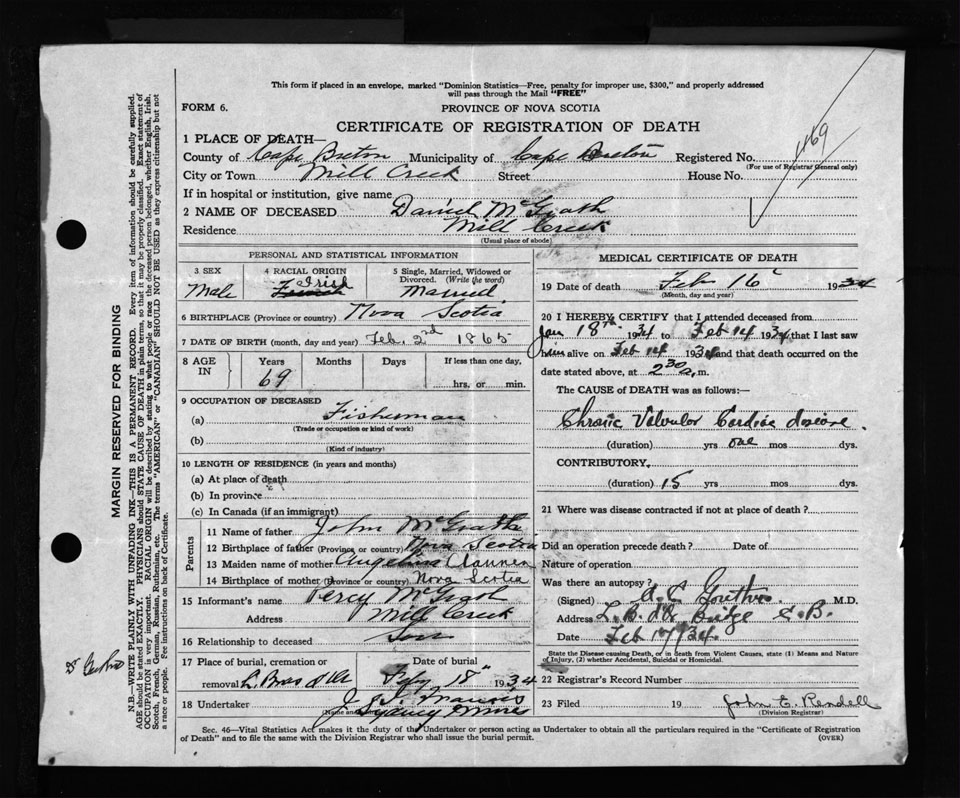 This form if placed in an envelope, marked "Dominion Statistics—Free, penalty for improper use, $300," and properly addressed
will pass through the Mail "FREE"
FORM 6.
PROVINCE OF NOVA SCOTIA
CERTIFICATE OF REGISTRATION OF DEATH
1469
1 PLACE OF DEATH—
County of Cape Breton Municipality of Cape Breton Registered No.
(For use of Registrar General only)
City or Town Mill Creek Street House No.
If in hospital or institution, give name
2 NAME OF DECEASED Daniel McGrath
Residence Mill Creek
(Usual place of abode)
PERSONAL AND STATISTICAL INFORMATION
3 SEX
Male
4 RACIAL ORIGIN
Irish
5 Single, Married, Widowed or
Divorced. (Write the word)
Married
6 BIRTHPLACE (Province or country) Nova Scotia
7 DATE OF BIRTH (month, day and year) Feb. 2nd 1865
8 AGE IN
Years Months Days If less than one day,
69
hrs. or min.
9 OCCUPATION OF DECEASED
(a) Fisherman
(Trade or occupation or kind of work)
(b)
(Kind of industry)
10 LENGTH OF RESIDENCE (in years and months)
(a) At place of death
(b) In province
(c) In Canada (if an immigrant)
Parents
11 Name of father John McGrath
12 Birthplace of father (Province or country) Nova Scotia
13 Maiden name of mother
14 Birthplace of mother (Province or country) Nova Scotia
15 Informant's name Percy McGrath
Address Mill Creek
16 Relationship to deceased Son
17 Place of burial, cremation or
removal L. Bras d'Or
Date of burial
18 1934
18 Undertaker J.
(Name and
Sydney Mines
MEDICAL CERTIFICATE OF DEATH
19 Date of death Feb 16 1934
(Month, day and year)
20 I HEREBY CERTIFY that I attended deceased from
Jan 18th 1934 to Feb 14 1934, that I last saw
him alive on Feb 14 1934 and that death occurred on the
date stated above, at 2 30 a. m.
The CAUSE OF DEATH was as follows:—
Chronic Valvular Cardiac disease.
(duration) yrs one mos dys.
CONTRIBUTORY.
(duration) 15 yrs mos dys.
21 Where was disease contracted if not at place of death?
Did an operation precede death? Date of
Nature of operation
Was there an autopsy?
(Signed) M.D.
Address L. B. d'Or Bridge C.B.
Date Feb 34
State the Disease causing Death, or in Death from Violent Causes, state (1) Means and Nature
of Injury, (2) whether Accidental, Suicidal or Homicidal.
22 Registrar's Record Number
23 Filed 19 John E. Rendell
(Division Registrar)
Sec. 46—Vital Statistics Act makes it the duty of the Undertaker or person acting as Undertaker to obtain all the particulars required in the "Certificate of Registration
of Death" and to file the same with the Division Registrar who shall issue the burial permit. (OVER)
MARGIN RESERVED FOR BINDING
N.B.—WRITE PLAINLY WITH UNFADING INK—THIS IS A PERMANENT RECORD. Every item of information should be carefully supplied.
AGE should be stated EXACTLY. PHYSICIANS should STATE CAUSE OF DEATH in plain terms, so that it may be properly classified. Exact statement of
OCCUPATION is very important. RACIAL ORIGIN will be described by stating to what people or race the deceased person belonged, whether English, Irish,
Scotch, French, German, Russian, Ruthenian, etc. The terms "AMERICAN" or "CANADIAN" SHOULD NOT BE USED as they express citizenship but not
a race or people. Fee instructions on back of Certificate.